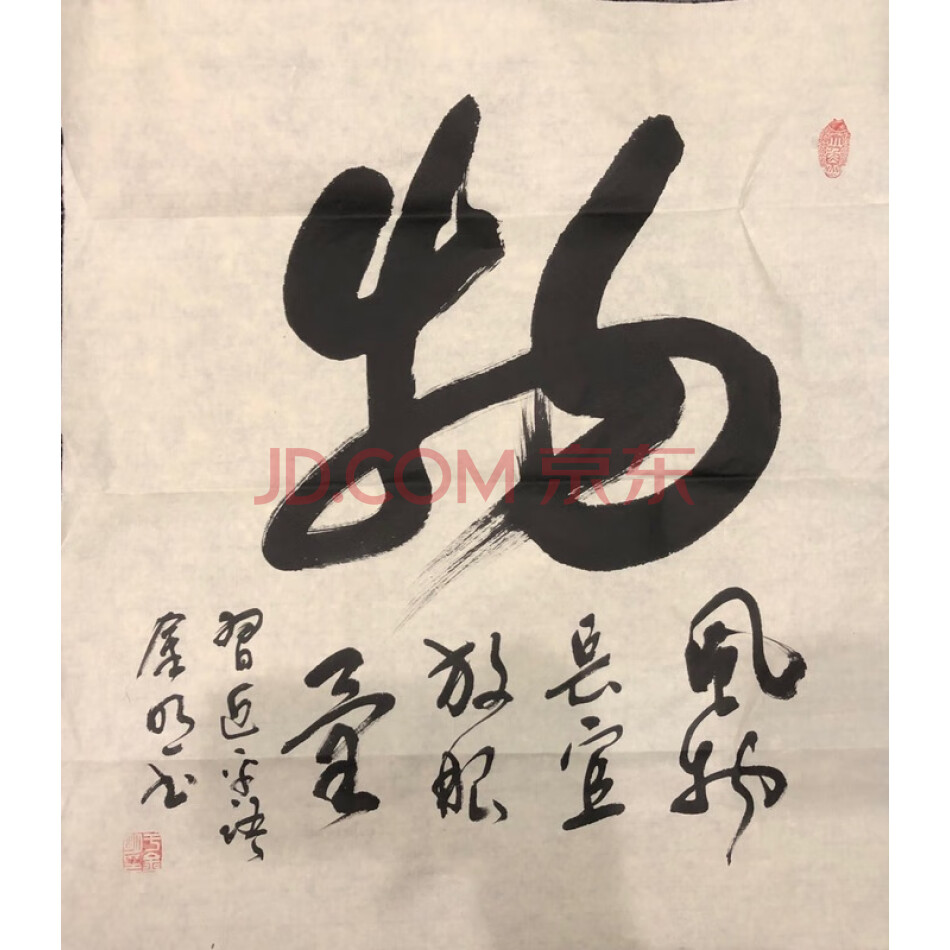 物
JD.COM 京东
風物
長宜
放眼
量
習近平語
明书